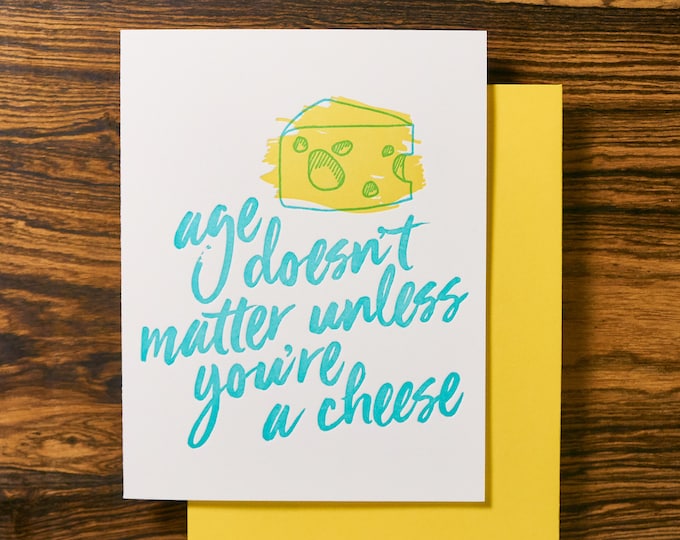 age
doesn't
matter unless
you're
a cheese